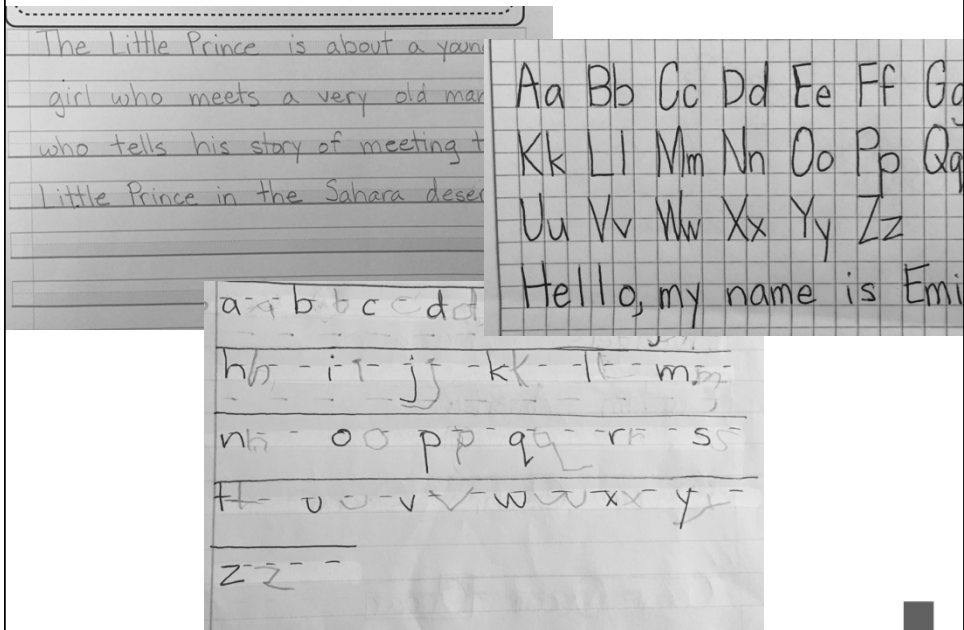 The Little Prince is about a youn
girl who meets a very old man
who tells his story of meeting t
Little Prince in the Sahara deser
Aa Bb Cc Dd Ee Ff Gg
Kk Ll Mm Nn Oo Pp Qq
Uu Vv Ww Xx Yy Zz
Hello, my name is Emi
a a b b c c d d
h h i i j j k k l l m m
n n o o p p q q r r s s
t t u u v v w w x x y y
z z